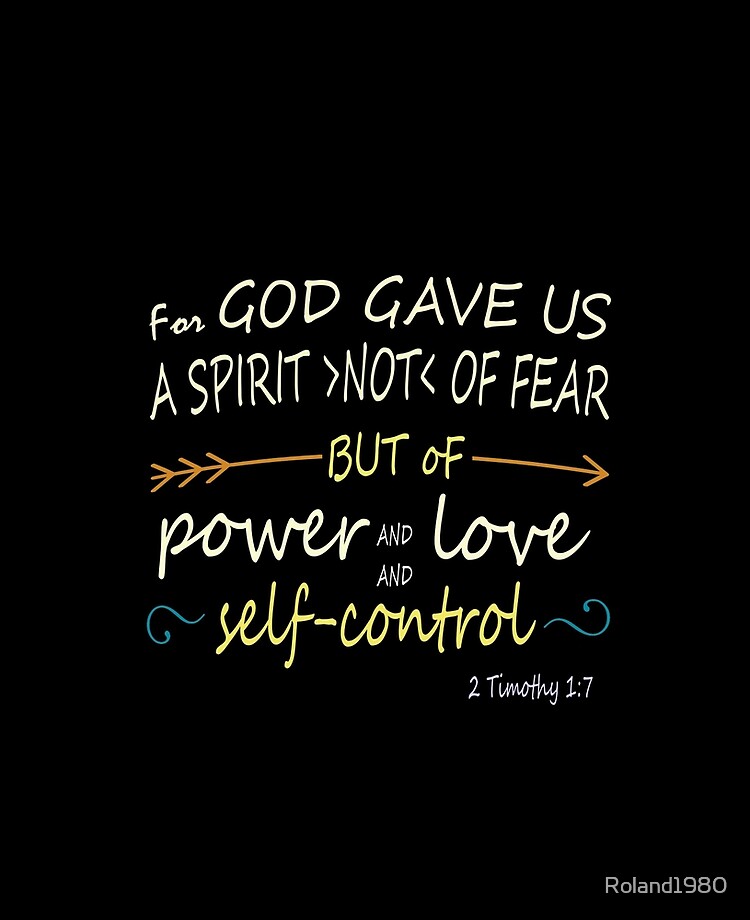 For GOD GAVE US
A SPIRIT >NOT< OF FEAR
BUT oF
power AND love
AND
self-control
2 Timothy 1:7
Roland1980